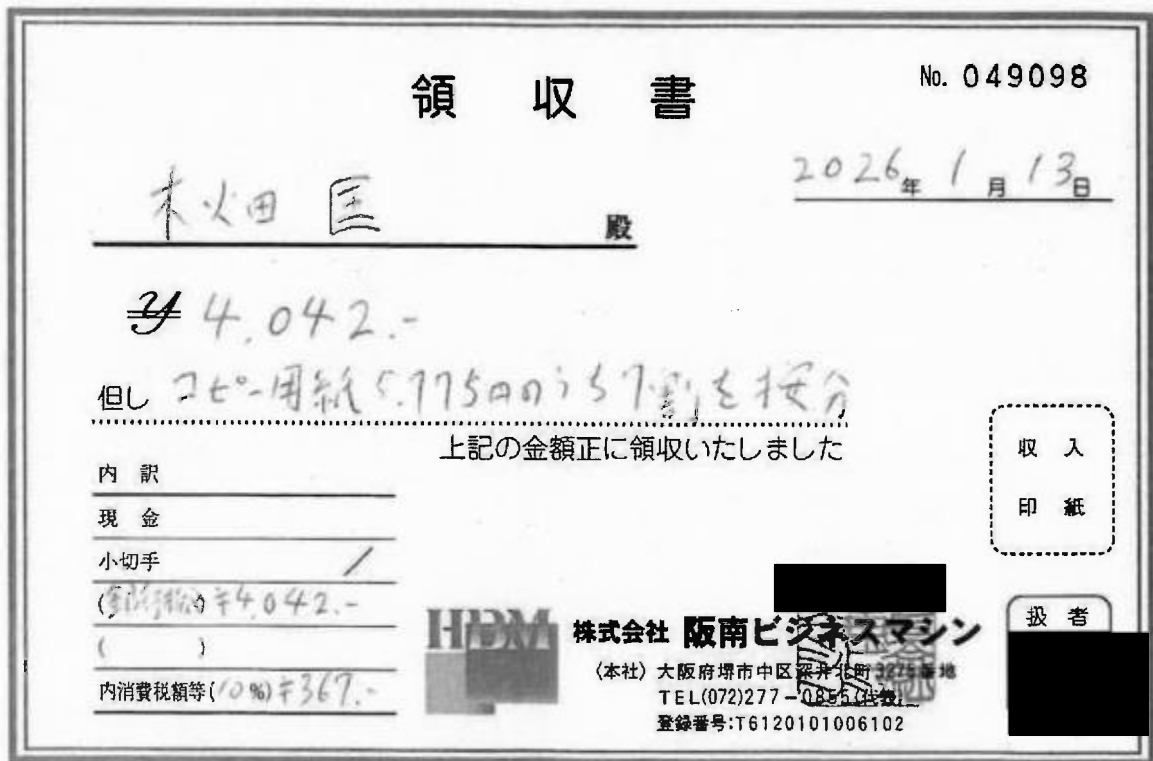 領収書
No. 049098
2026年 1月 13日
木畑 匡 殿
¥ 4,042.-
但し コピー用紙 5,775円のうち7割を按分
上記の金額正に領収いたしました
収入
印紙
内訳
現金
小切手 /
( ) ¥4,042.-
( )
内消費税額等(10%) ¥367.-
HBM
株式会社 阪南ビジネスマシン
(本社) 大阪府堺市中区深井北町3275番地
TEL(072)277-0855(代表)
登録番号:T6120101006102
扱者